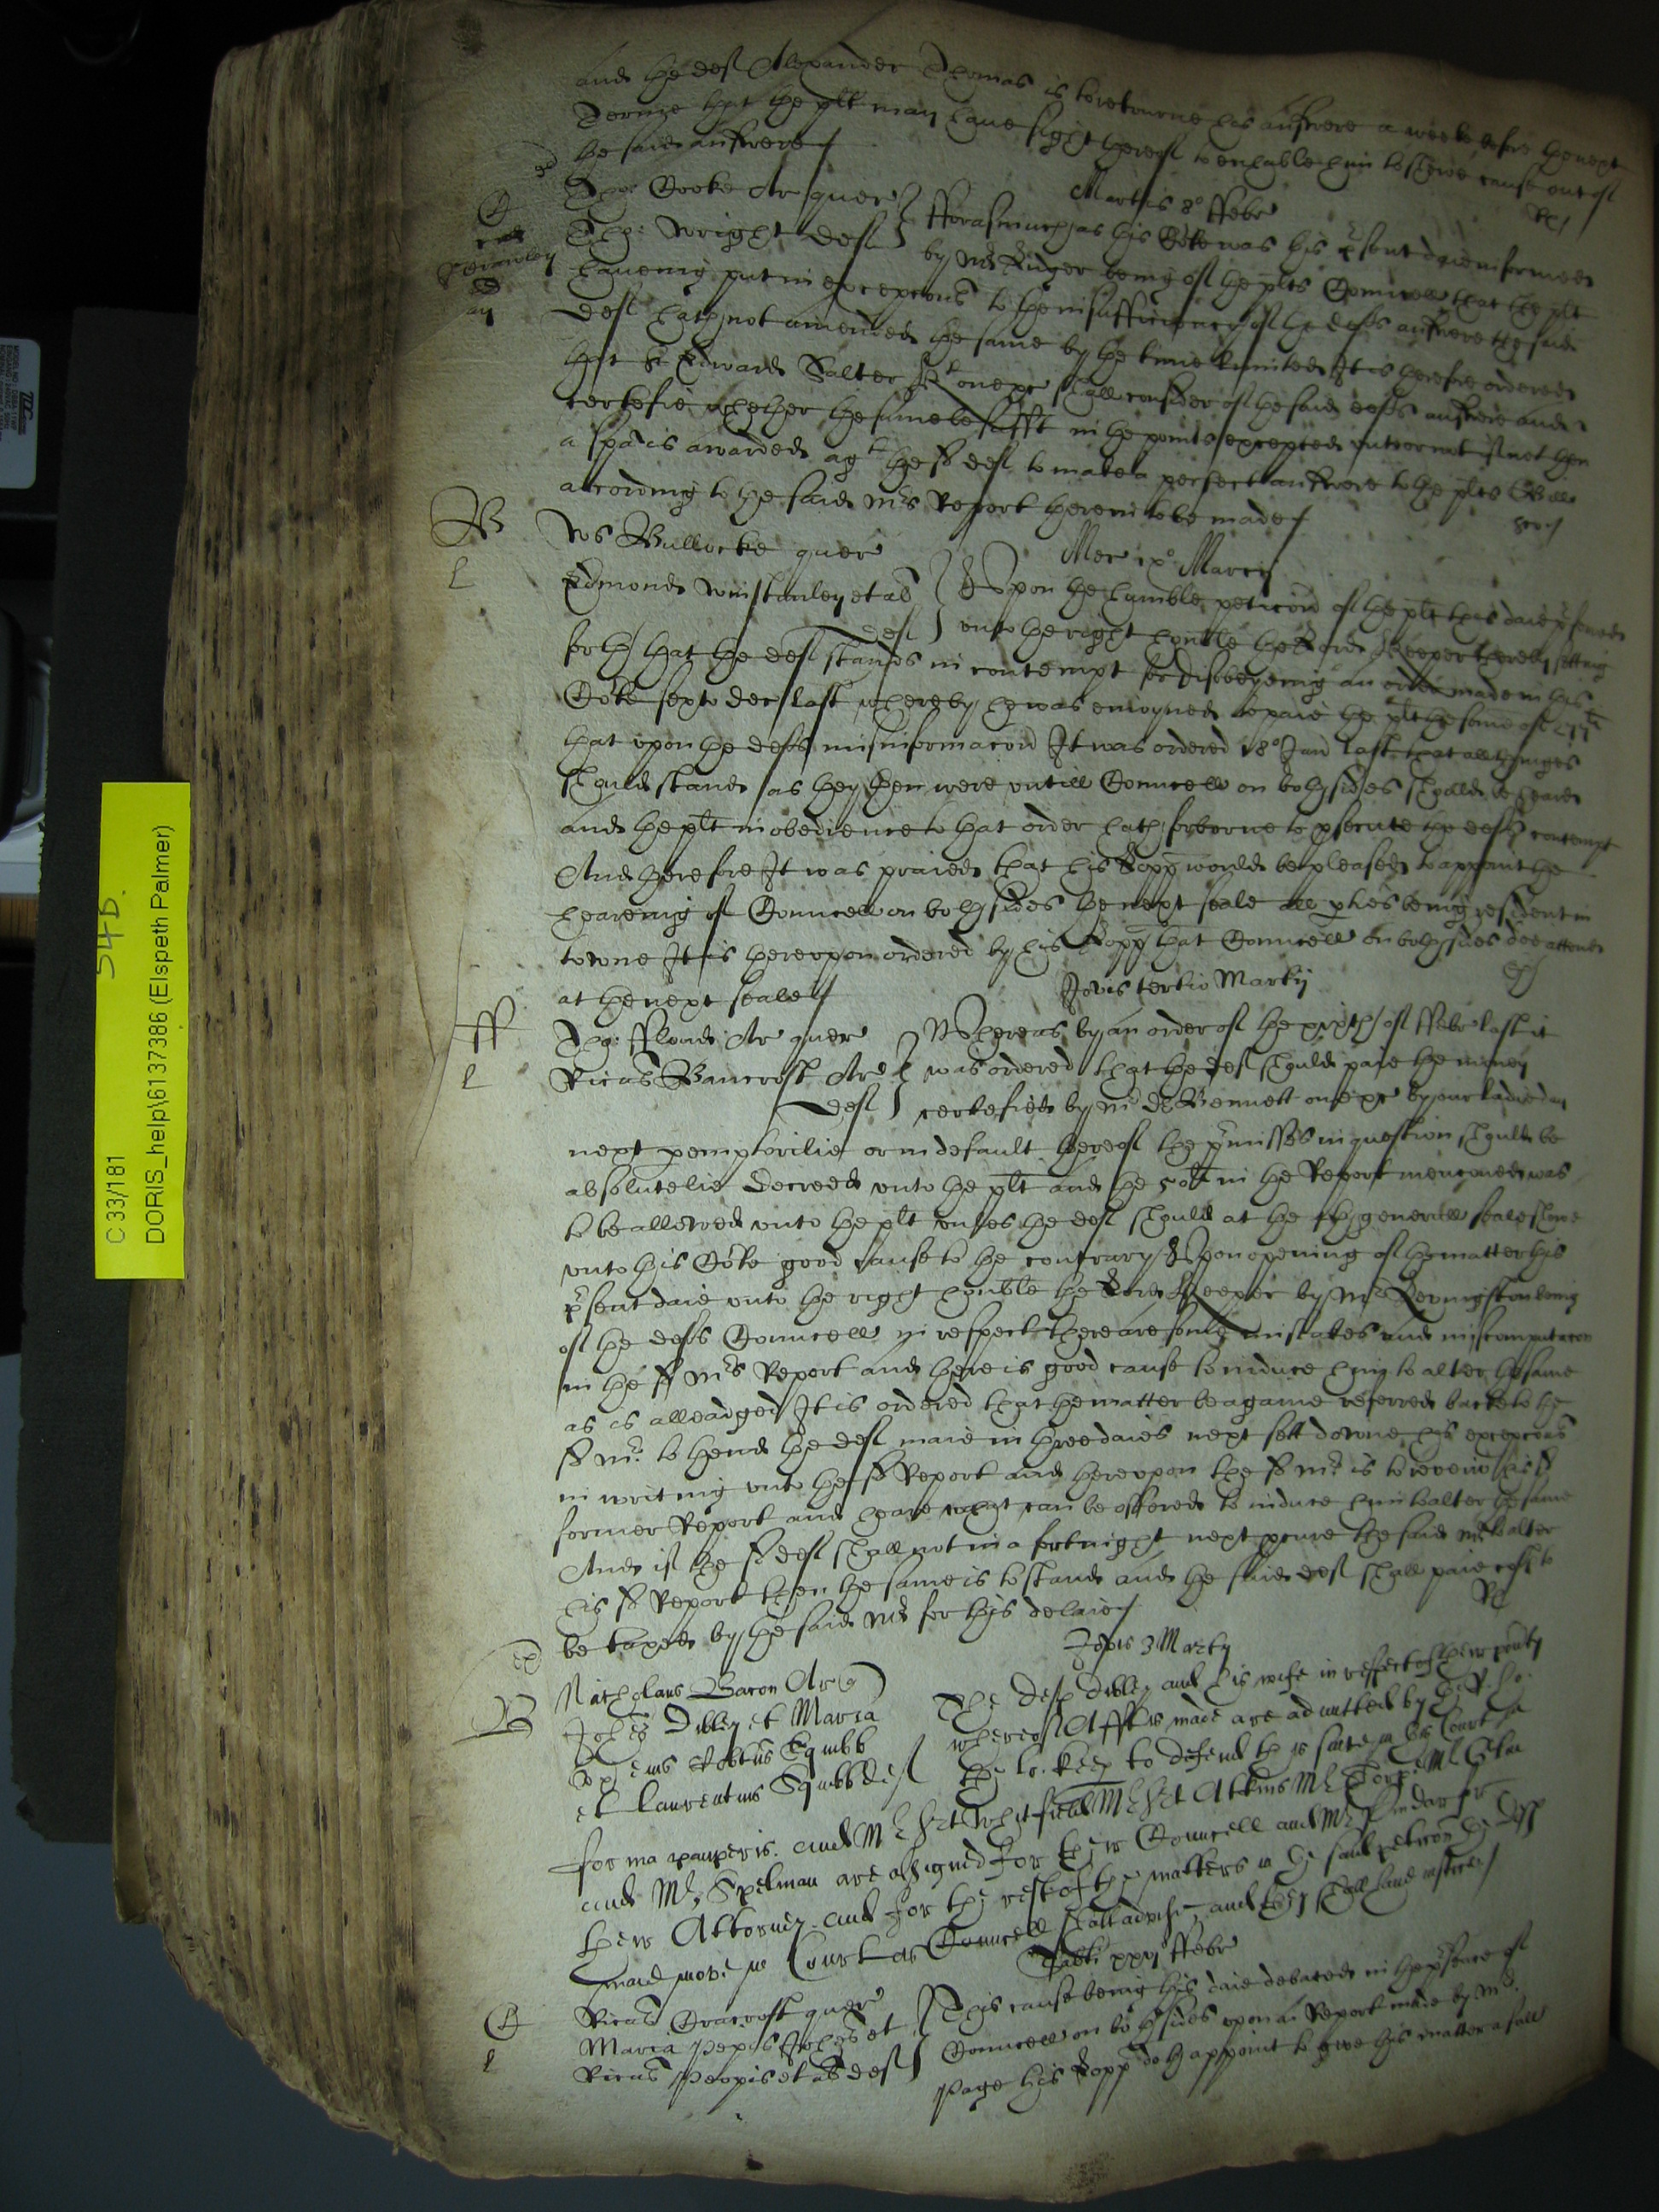 and the deft Alexander Thomas is to retourne his answere a weeke before the next
Terme that the plt may have sight thereof to enhable him to shewe cause out of
the said answere
Martis 8o ffebr
Tho: Cooke Ar quer
Tho: Wright deft
fforasmuch as this Cote was this psent daie informed
by Mr Finger being of the plts Councell that the plt
haveing put in excepcons to the insufficiency of the defts answere the said
deft hath not amended the same by the time limited It is therefore ordered
that Sr Edward Salter Kt one &c shall consider of the said defts answere and
certefie whether the same be sufft in the points excepted unto or not If not then
a spa is awarded agt the sd deft to make a perfect answere to the plts Bill
according to the said Mrs Report herein to be made
B
Ws Bullocke quer
Edmond Winstanley et al
deft
Mer ix Marcij
Upon the humble peticon of the plt this daie pferred
unto the right honble the Lord Keeper thereby setting
forth that the deft stands in contempt for disobeyeing an order made in this
Cote sexto Dec last whereby he was enioyned to paie the plt the some of
that upon the defts misinformacon It was ordered 18o Jan last that all thinges
should stand as they then were untill Councell on both sides should be heard
and the plt in obedience to that order hath forborne to psecute the defts contempt
And therefore It was praied that his Lopp would be pleased to appoint the
heareing of Councell on both sides the next seale all pties being resident in
towne It is thereupon ordered by his Lopp that Councell on both sides doe attend
at the next seale
Jovis tertio Martij
ff
Tho: ffloud Ar quer
Ricus Bancroft Ar
deft
Whereas by an order of the xvith of ffebr last it
was ordered that the deft should paie the money
certefied by Mr Dr Bennett one &c by our ladie day
next pemptorilie or in default thereof the pmisses in question should be
absolutelie decreed unto the plt and the 50li in the Report menconed was
to be allowed unto the plt unles the deft should at the generall seale shewe
unto this Cote good cause to the contrary Upon opening of the matter this
psent daie unto the right honble the Lord Keeper by Mr Levingston being
of the defts Councell in respect there are some mistakes and miscomputacon
in the sd Mrs Report and there is good cause to induce him to alter the same
as is alleadged It is ordered that the matter be againe referred backe to the
sd Mr to thend the deft maie in three daies next sett downe his excepcons
in writing unto the sd Report and thereupon the sd Mr is to review his sd
former Report and heare what can be offered to induce him to alter the same
And if the sd deft shall not in a fortnight next pcure the said Mr to alter
his sd Report then the same is to stand and the said deft shall paie cost to
be taxed by the said Mr for this delaie
Jovis 3 Martij
B
Nicholaus Bacon Ar
Johes Dibley et Maria
et Laurentius Squibb deft
The deft Dibley and his wife in respect of their povty
whereof Afft is made are admitted by the
the lo: keep to defend this suite in this Court in
forma pauperis. and Mr Srt Whitfield Mr Srt Atkins
and Mr Spelman are assigned for their Councell and Mr Pindar for
their Attorney and for the rest of the matters in the said peticon the deft
maie move the Court as Councell shall advise, and they shall have iustice
Sabti xxvj ffebr
Ricus Cracroft quer
Maria Pepis Johes et
Ricus Peopis et al deft
This cause being this daie debated in the psence of
Councell on both sides upon a Report made by Mr
Page his Lopp doth appoint to give this matter a full
C 33/181
54D.
DORIS_help\6137386 (Elspeth Palmer)